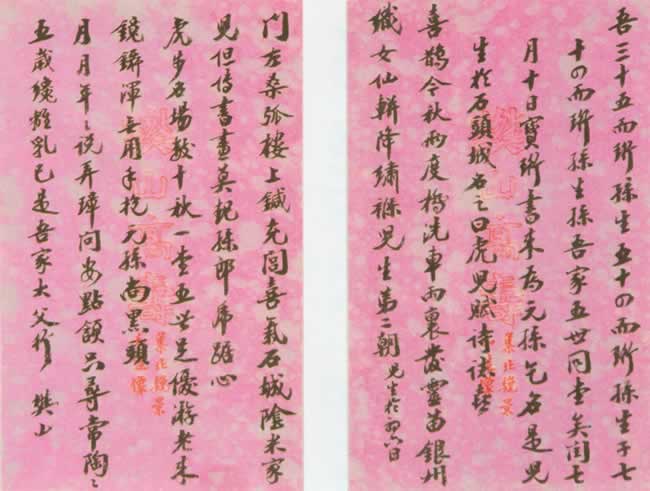 吾三十五而珩孫生五十四而珩孫生子七
十四而珩孫生孫吾家五世同堂矣閏七
月十日寶珩書來為元孫乞名是兒
生於石頭城名之曰虎兒賦詩
喜鵲今秋兩度橋洗車雨裏發靈苗銀州
織女仙軿降繡褓兒生第二朝 兒生於初八日
門左桑弧樓上鍼充閭喜氣石城陰米家
兒但傳書畫莫 孫郎虎踞心
虎步名場數十秋一堂五世足優游老來
鏡鑷渾無用手抱元孫尚黑頭
月月年〻說弄璋問安點頷只尋常陶〻
五歲纔離乳已是吾家大父行 樊山